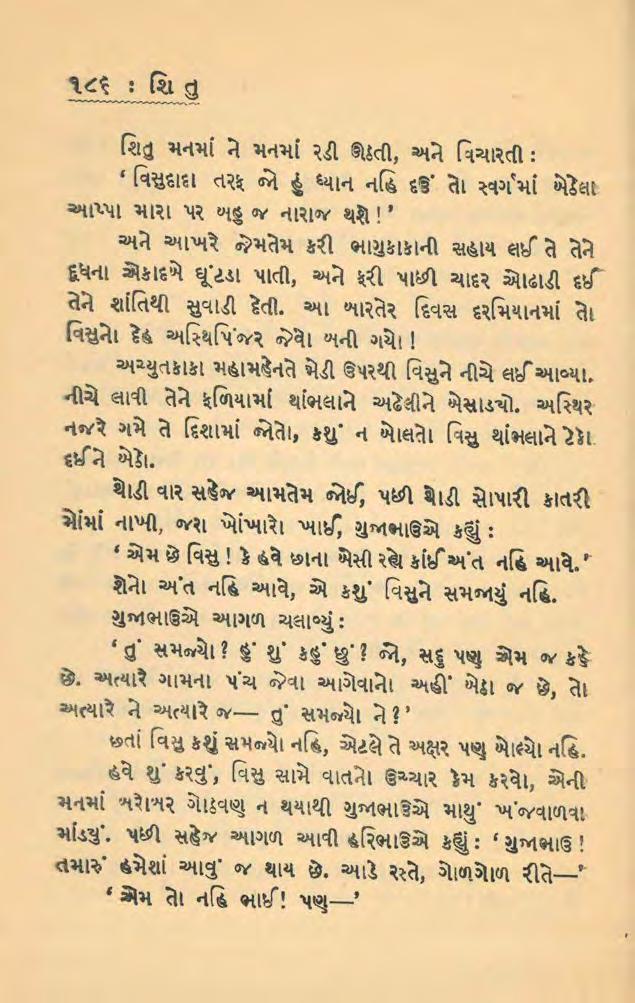 ૧૮૬ : શિ તુ
શિતુ મનમાં ને મનમાં રડી ઊઠતી, અને વિચારતી :
‘ વિસુદાદા તરફ જો હું ધ્યાન નહિ દઉં તો સ્વર્ગમાં બેઠેલા
આપ્પા મારા પર બહુ જ નારાજ થશે ! ’
અને આખરે જેમતેમ કરી ભાગુકાકાની સહાય લઈ તે તેને
દૂધના એકાદબે ઘૂંટડા પાતી, અને ફરી પાછી ચાદર ઓઢાડી દઈ
તેને શાંતિથી સુવાડી દેતી. આ બારતેર દિવસ દરમિયાનમાં તો
વિસુનો દેહ અસ્થિપિંજર જેવો બની ગયો !
અચ્યુતકાકા મહામહેનતે મેડી ઉપરથી વિસુને નીચે લઈ આવ્યા.
નીચે લાવી તેને ફળિયામાં થાંભલાને અઢેલીને બેસાડ્યો. અસ્થિર
નજરે ગમે તે દિશામાં જોતો, કશું ન બોલતો વિસુ થાંભલાને ટેકો
દઈને બેઠો.
થોડી વાર સહેજ આમતેમ જોઈ, પછી થોડી સોપારી કાતરી
મોંમાં નાખી, જરા ખોંખારો ખાઈ, ગુજાભાઉએ કહ્યું :
‘ એમ છે વિસુ ! કે હવે છાના બેસી રહ્યે કાંઈ અંત નહિ આવે. ’
શેનો અંત નહિ આવે, એ કશું વિસુને સમજાયું નહિ.
ગુજાભાઉએ આગળ ચલાવ્યું :
‘ તું સમજ્યો ? હું શું કહું છું ? જો, સહુ પણ એમ જ કહે
છે. અત્યારે ગામના પંચ જેવા આગેવાનો અહીં બેઠા જ છે, તો
અત્યારે ને અત્યારે જ— તું સમજ્યો ને ? ’
છતાં વિસુ કશું સમજ્યો નહિ, એટલે તે અક્ષર પણ બોલ્યો નહિ.
હવે શું કરવું, વિસુ સામે વાતનો ઉચ્ચાર કેમ કરવો, એની
મનમાં બરોબર ગોઠવણ ન થયાથી ગુજાભાઉએ માથું ખંજવાળવા
માંડ્યું. પછી સહેજ આગળ આવી હરિભાઉએ કહ્યું : ‘ ગુજાભાઉ !
તમારું હમેશાં આવું જ થાય છે. આડે રસ્તે, ગોળગોળ રીતે—’
‘ એમ તો નહિ ભાઈ ! પણ—’